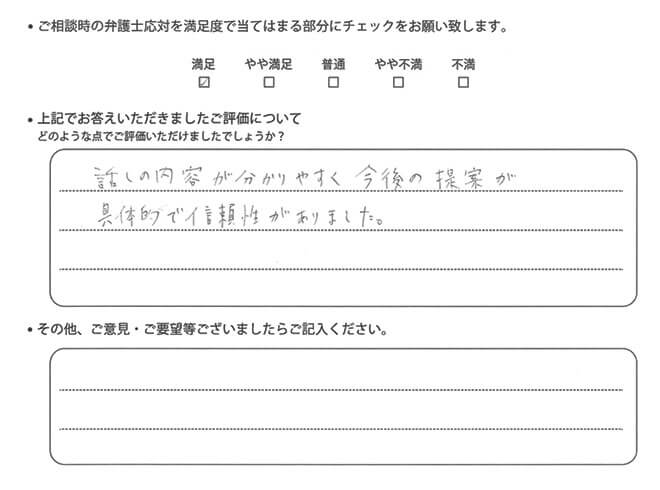 • ご相談時の弁護士応対を満足度で当てはまる部分にチェックをお願い致します。
満足 やや満足 普通 やや不満 不満
☑ □ □ □ □
• 上記でお答えいただきましたご評価について
どのような点でご評価いただけましたでしょうか？
話しの内容が分かりやすく今後の提案が
具体的で信頼性がありました。
• その他、ご意見・ご要望等ございましたらご記入ください。